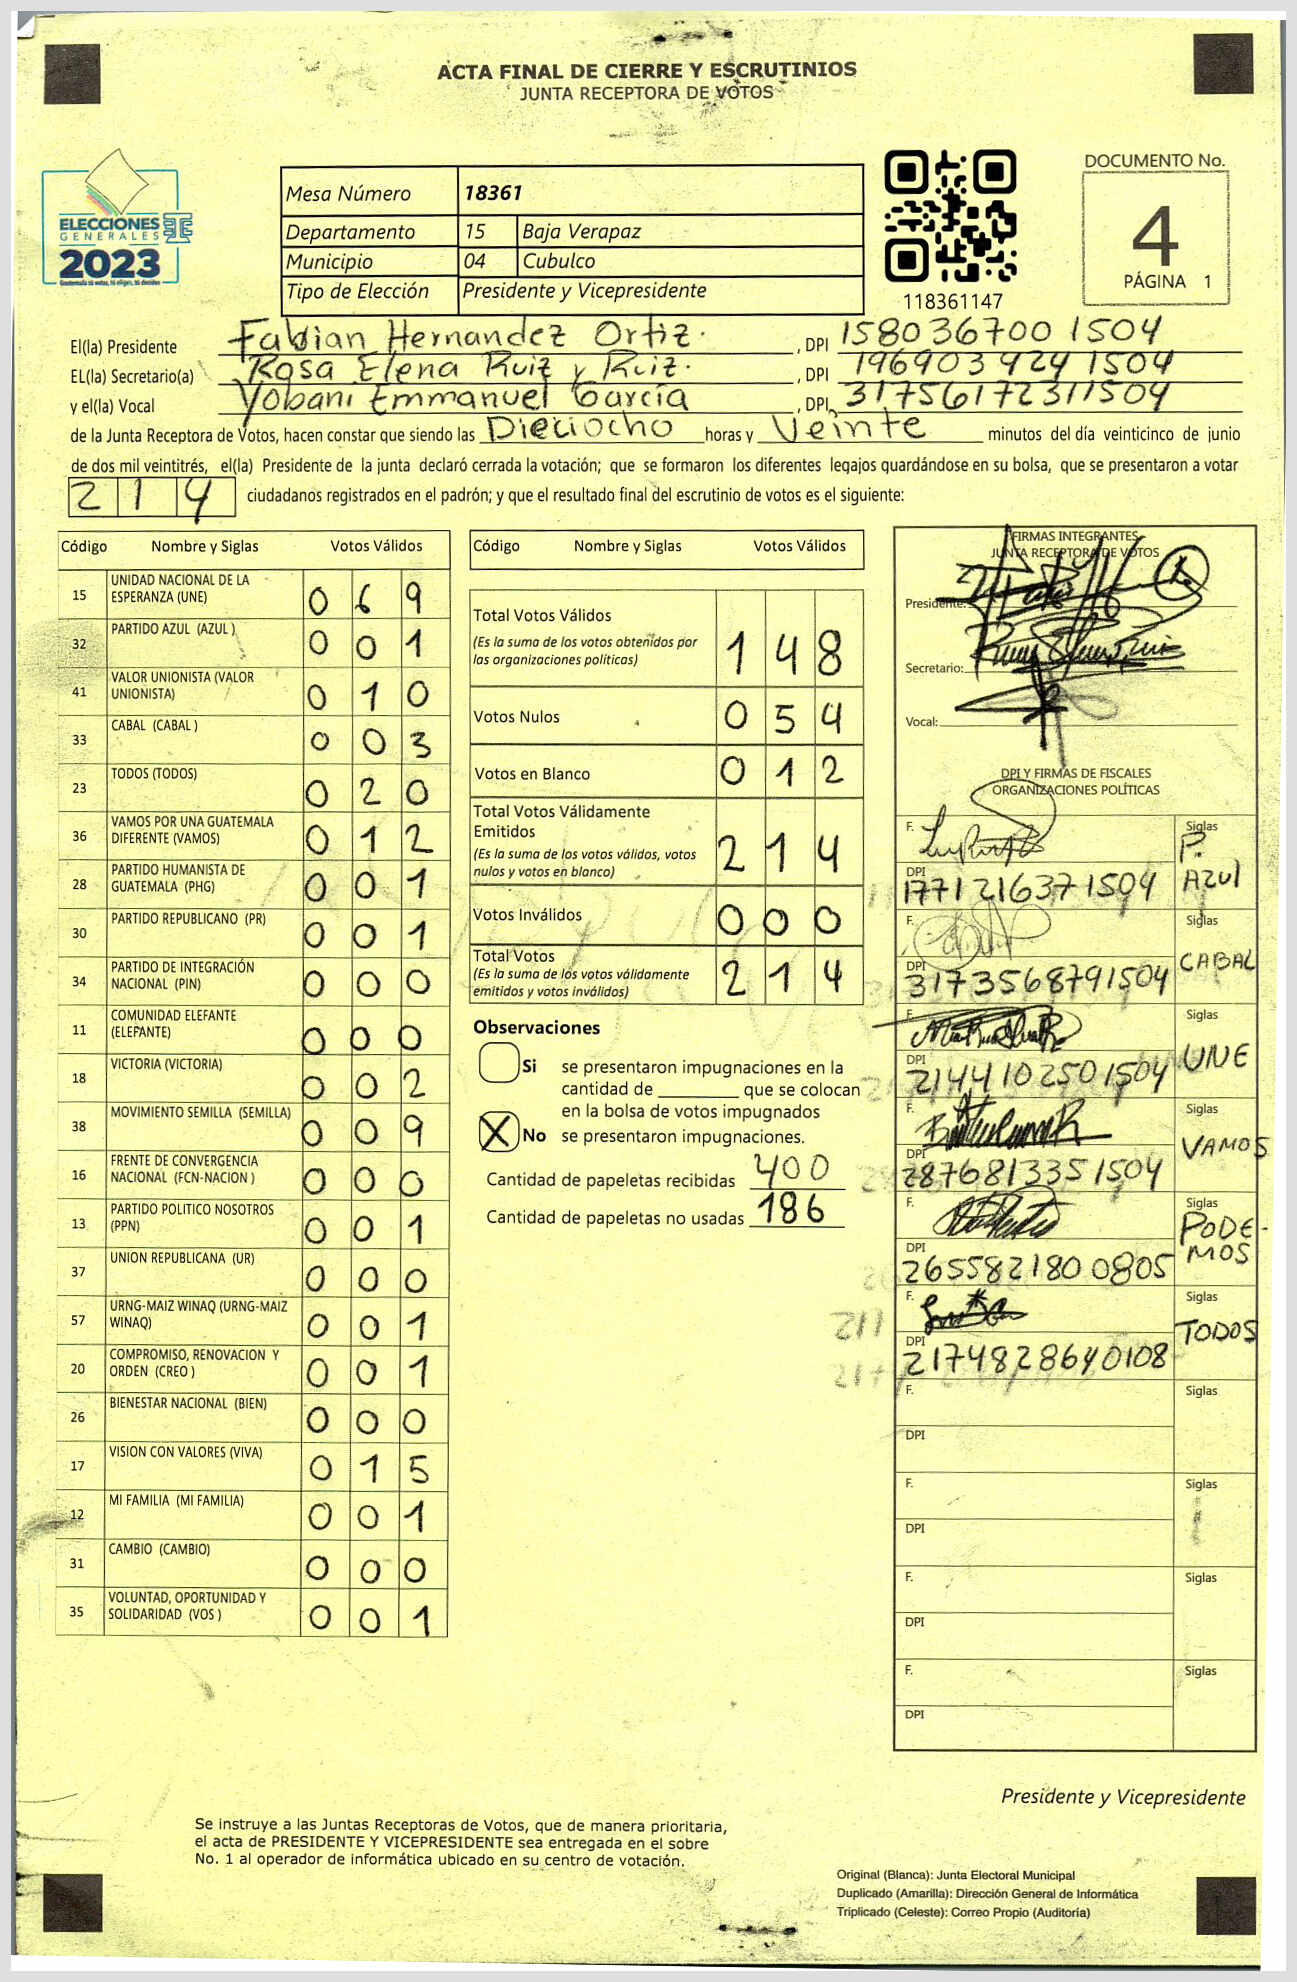 ACTA FINAL DE CIERRE Y ESCRUTINIOS
JUNTA RECEPTORA DE VOTOS
ELECCIONES
GENERALES
2023
Mesa Número 18361
Departamento 15 Baja Verapaz
Municipio 04 Cubulco
Tipo de Elección Presidente y Vicepresidente
118361147
DOCUMENTO No.
4
PÁGINA 1
El(la) Presidente Fabian Hernandez Ortiz. , DPI 158036700 1504
EL(la) Secretario(a) Rosa Elena Ruiz y Ruiz. , DPI 196903424 1504
y el(la) Vocal Yobani Emmanuel García , DPI 317561723 11504
de la Junta Receptora de Votos, hacen constar que siendo las Dieciocho horas y Veinte minutos del día veinticinco de junio
de dos mil veintitrés, el(la) Presidente de la junta declaró cerrada la votación; que se formaron los diferentes legajos guardándose en su bolsa, que se presentaron a votar
214 ciudadanos registrados en el padrón; y que el resultado final del escrutinio de votos es el siguiente:
Código Nombre y Siglas Votos Válidos
15 UNIDAD NACIONAL DE LA ESPERANZA (UNE) 0 6 9
32 PARTIDO AZUL (AZUL ) 0 0 1
41 VALOR UNIONISTA (VALOR UNIONISTA) 0 1 0
33 CABAL (CABAL ) 0 0 3
23 TODOS (TODOS) 0 2 0
36 VAMOS POR UNA GUATEMALA DIFERENTE (VAMOS) 0 1 2
28 PARTIDO HUMANISTA DE GUATEMALA (PHG) 0 0 1
30 PARTIDO REPUBLICANO (PR) 0 0 1
34 PARTIDO DE INTEGRACIÓN NACIONAL (PIN) 0 0 0
11 COMUNIDAD ELEFANTE (ELEFANTE) 0 0 0
18 VICTORIA (VICTORIA) 0 0 2
38 MOVIMIENTO SEMILLA (SEMILLA) 0 0 9
16 FRENTE DE CONVERGENCIA NACIONAL (FCN-NACION ) 0 0 0
13 PARTIDO POLITICO NOSOTROS (PPN) 0 0 1
37 UNION REPUBLICANA (UR) 0 0 0
57 URNG-MAIZ WINAQ (URNG-MAIZ WINAQ) 0 0 1
20 COMPROMISO, RENOVACION Y ORDEN (CREO ) 0 0 1
26 BIENESTAR NACIONAL (BIEN) 0 0 0
17 VISION CON VALORES (VIVA) 0 1 5
12 MI FAMILIA (MI FAMILIA) 0 0 1
31 CAMBIO (CAMBIO) 0 0 0
35 VOLUNTAD, OPORTUNIDAD Y SOLIDARIDAD (VOS ) 0 0 1
Código Nombre y Siglas Votos Válidos
Total Votos Válidos 1 4 8
(Es la suma de los votos obtenidos por
las organizaciones políticas)
Votos Nulos 0 5 4
Votos en Blanco 0 1 2
Total Votos Válidamente
Emitidos 2 1 4
(Es la suma de los votos válidos, votos
nulos y votos en blanco)
Votos Inválidos 0 0 0
Total Votos 2 1 4
(Es la suma de los votos válidamente
emitidos y votos inválidos)
Observaciones
Si se presentaron impugnaciones en la
cantidad de ________ que se colocan
en la bolsa de votos impugnados
X No se presentaron impugnaciones.
Cantidad de papeletas recibidas 400
Cantidad de papeletas no usadas 186
FIRMAS INTEGRANTES
JUNTA RECEPTORA DE VOTOS
Presidente:
Secretario:
Vocal:
DPI Y FIRMAS DE FISCALES
ORGANIZACIONES POLÍTICAS
F. Siglas P. Azul
DPI 177121637 1504
F. Siglas CABAL
DPI 3173568791504
F. Siglas UNE
DPI 2144102501504
F. Siglas VAMOS
DPI 287681335 1504
F. Siglas PODE-
MOS
DPI 265582180 0805
F. Siglas TODOS
DPI 2174828640108
F. Siglas
DPI
F. Siglas
DPI
F. Siglas
DPI
F. Siglas
DPI
Presidente y Vicepresidente
Se instruye a las Juntas Receptoras de Votos, que de manera prioritaria,
el acta de PRESIDENTE Y VICEPRESIDENTE sea entregada en el sobre
No. 1 al operador de informática ubicado en su centro de votación.
Original (Blanca): Junta Electoral Municipal
Duplicado (Amarilla): Dirección General de Informática
Triplicado (Celeste): Correo Propio (Auditoría)